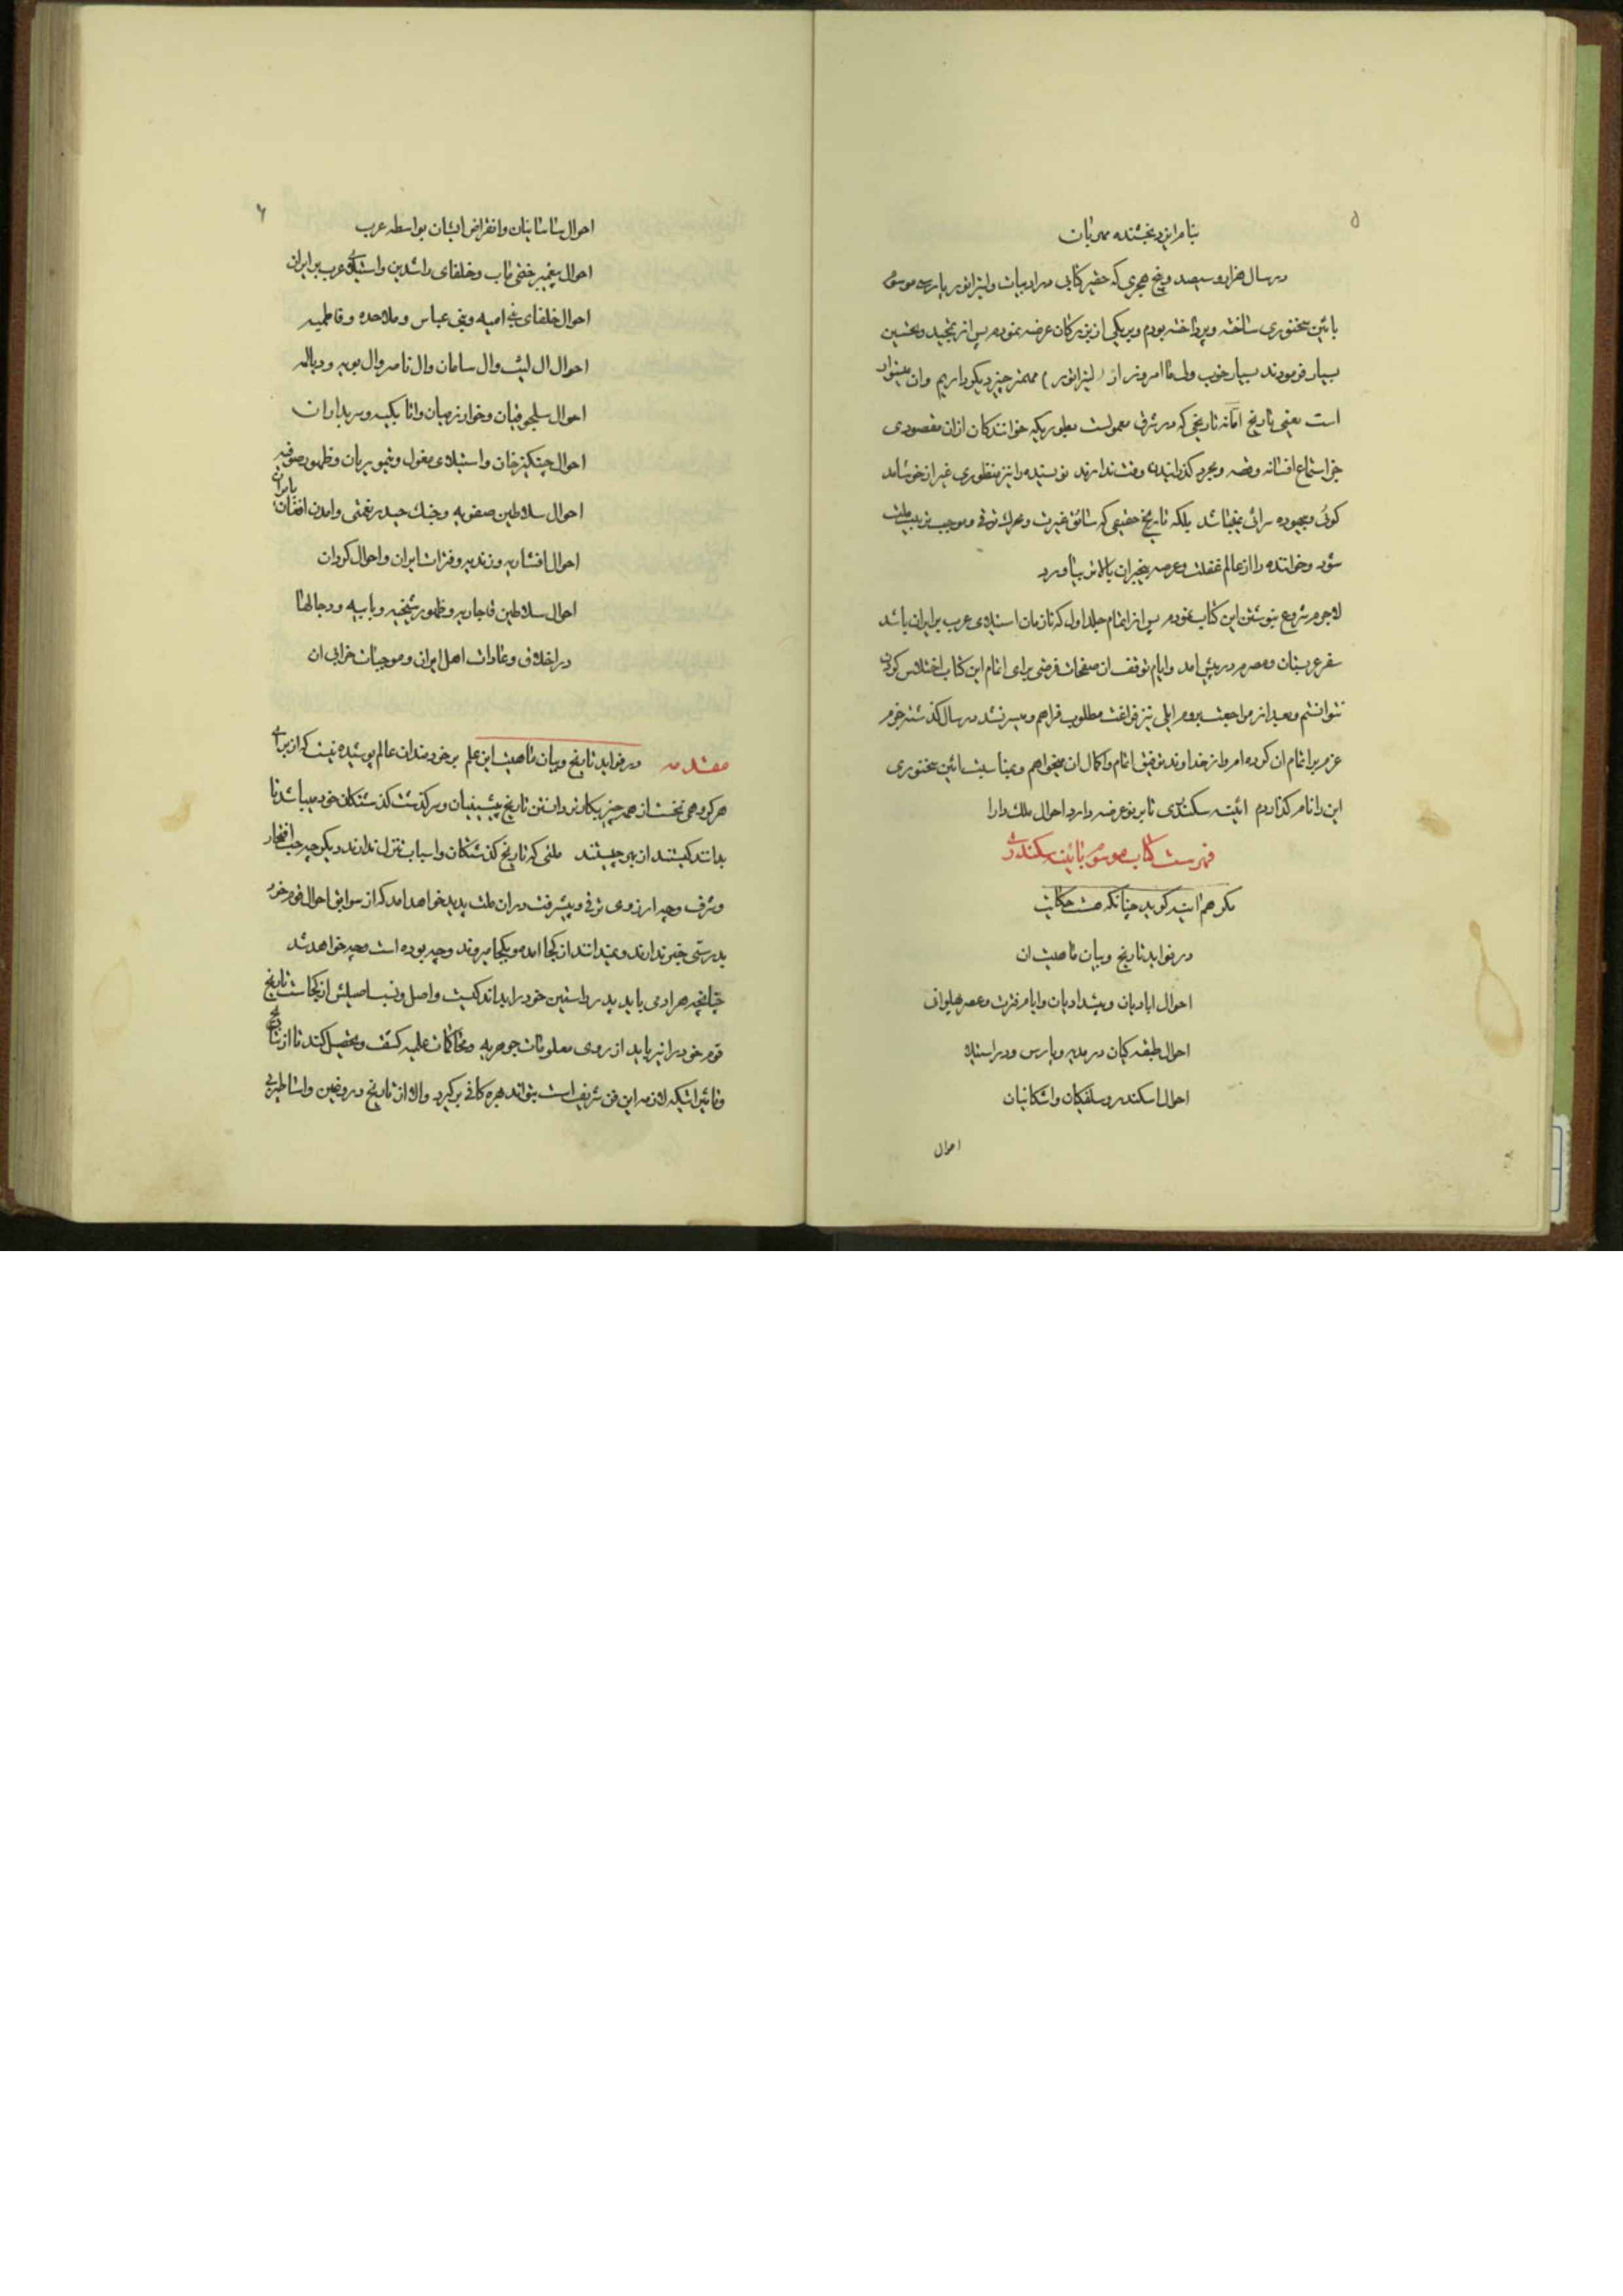 ۵
بنام ایزد بخشنده مهربان
در سال هزار و سیصد و پنج هجری که حقیر کتابی در ادبیات و لیتراتور پارسی موسوم
بآئین سخنوری ساخته و پرداخته بودم و بر یکی از بزرگان عرضه نمودم پس از تمجید و تحسین
بسیار فرمودند بسیار خوب ولی ما امروز از (لیتراتور) مهمتر چیز دیگر داریم وان هیستوار
است یعنی تاریخ اما نه تاریخی که در شرق معمولست بطوریکه خوانندکان ازان مقصودی
جز استماع افسانه و قصه و بمجرد گذرانیدن وقت ندارند نویسنده را نیز منظوری غیر از خوشامد
کوئی و بیهوده سرائی نمیباشد بلکه تاریخ حقیقی که سائق غیرت و محرک ترقی و موجب تربیت ملت
شود و خواننده را از عالم غفلت و عرصه بیخبران بالاتر بیاورد
لاجرم شروع بنوشتن این کتاب نمودم پس از اتمام جلد اول که تا زمان استیلای عرب بر ایران باشد
سفر عربستان و مصرم در پیش امد و ایام توقف ان صفحات فرصتی برای اتمام این کتاب اختلاس کردن
نتوانستم و بعد از مراجعت بروم ایلی نیز فراغت مطلوب فراهم و میسر نشد در سال گذشته جزم
عزم بر اتمام ان کرده امر و از خداوند توفیق اتمام و اکمال ان میخواهم و بمناسبت ائین سخنوری
این را نام گذاردم ائینه سکندری تا بر تو عرضه دارد احوال ملک دارا
فهرست کتاب موسوم بائینه سکندری
مگر هم اینه گوید چنانکه هست حکایت
در فواید تاریخ و بیان ماهیت ان
احوال ابادیان و پیشدادیان و ایام فترت و عصر پهلوانی
احوال طبقه کیان در مدیه و پارس و در استیلا
احوال اسکندر و سلفکان و اشکانیان
احوال
۶
احوال ساسانیان و انقراض ایشان بواسطه عرب
احوال پیغمبر ختمی ماب و خلفای راشدین و استیلای عرب بر ایران
احوال خلفای بنی امیه و بنی عباس و ملاحده و فاطمیه
احوال ال لیث و ال سامان و ال ناصر و ال بویه و دیالمه
احوال سلجوقیان و خوارزمیان و اتابکیه و سربداران
احوال چنکیز خان و استیلای مغول و تیموریان و ظهور صوفیه
احوال سلاطین صفویه و جنک حیدر نعمتی و امدن افغان بایران
احوال افشاریه و زندیه و فترات ایران و احوال کردان
احوال سلاطین قاجاریه و ظهور شیخیه و بابیه و دجالها
در اخلاق و عادات اهل ایران و موجبات خرابی ان
مقدمه در فواید تاریخ و بیان ماهیت این علم بر خردمندان عالم پوشیده نیست که از برای
هر گروهی نخست از همه چیز بکارتر دانستن تاریخ پیشینیان و سرگذشت گذشتکان خود میباشد تا
بدانند کیستند از پی چیستند ملتی که تاریخ گذشتکان و اسباب تنزل ندارند دیگر چه حب افتخار
و شرف و چه ارزوی ترقی و پیشرفت در ان ملت پدید خواهد امد که از سوابق احوال قوم خود
بدرستی خبر ندارند و نمیدانند از کجا امده و بکجا میروند و چه بوده است و چه خواهد شد
چنانچه هر ادمی باید پدر راستین خود را بداند کیست و اصل و نسب اصیلش از کجاست تاریخ
قوم خود را نیز باید از روی معلومات جوهریه و محاکمات علمیه کشف و تحصیل کند تا از نتایج
و تاثیراتیکه لازمه این فن شریف است بتواند بهره کافی برگیرد و الا از تاریخ دروغین و اساطیری